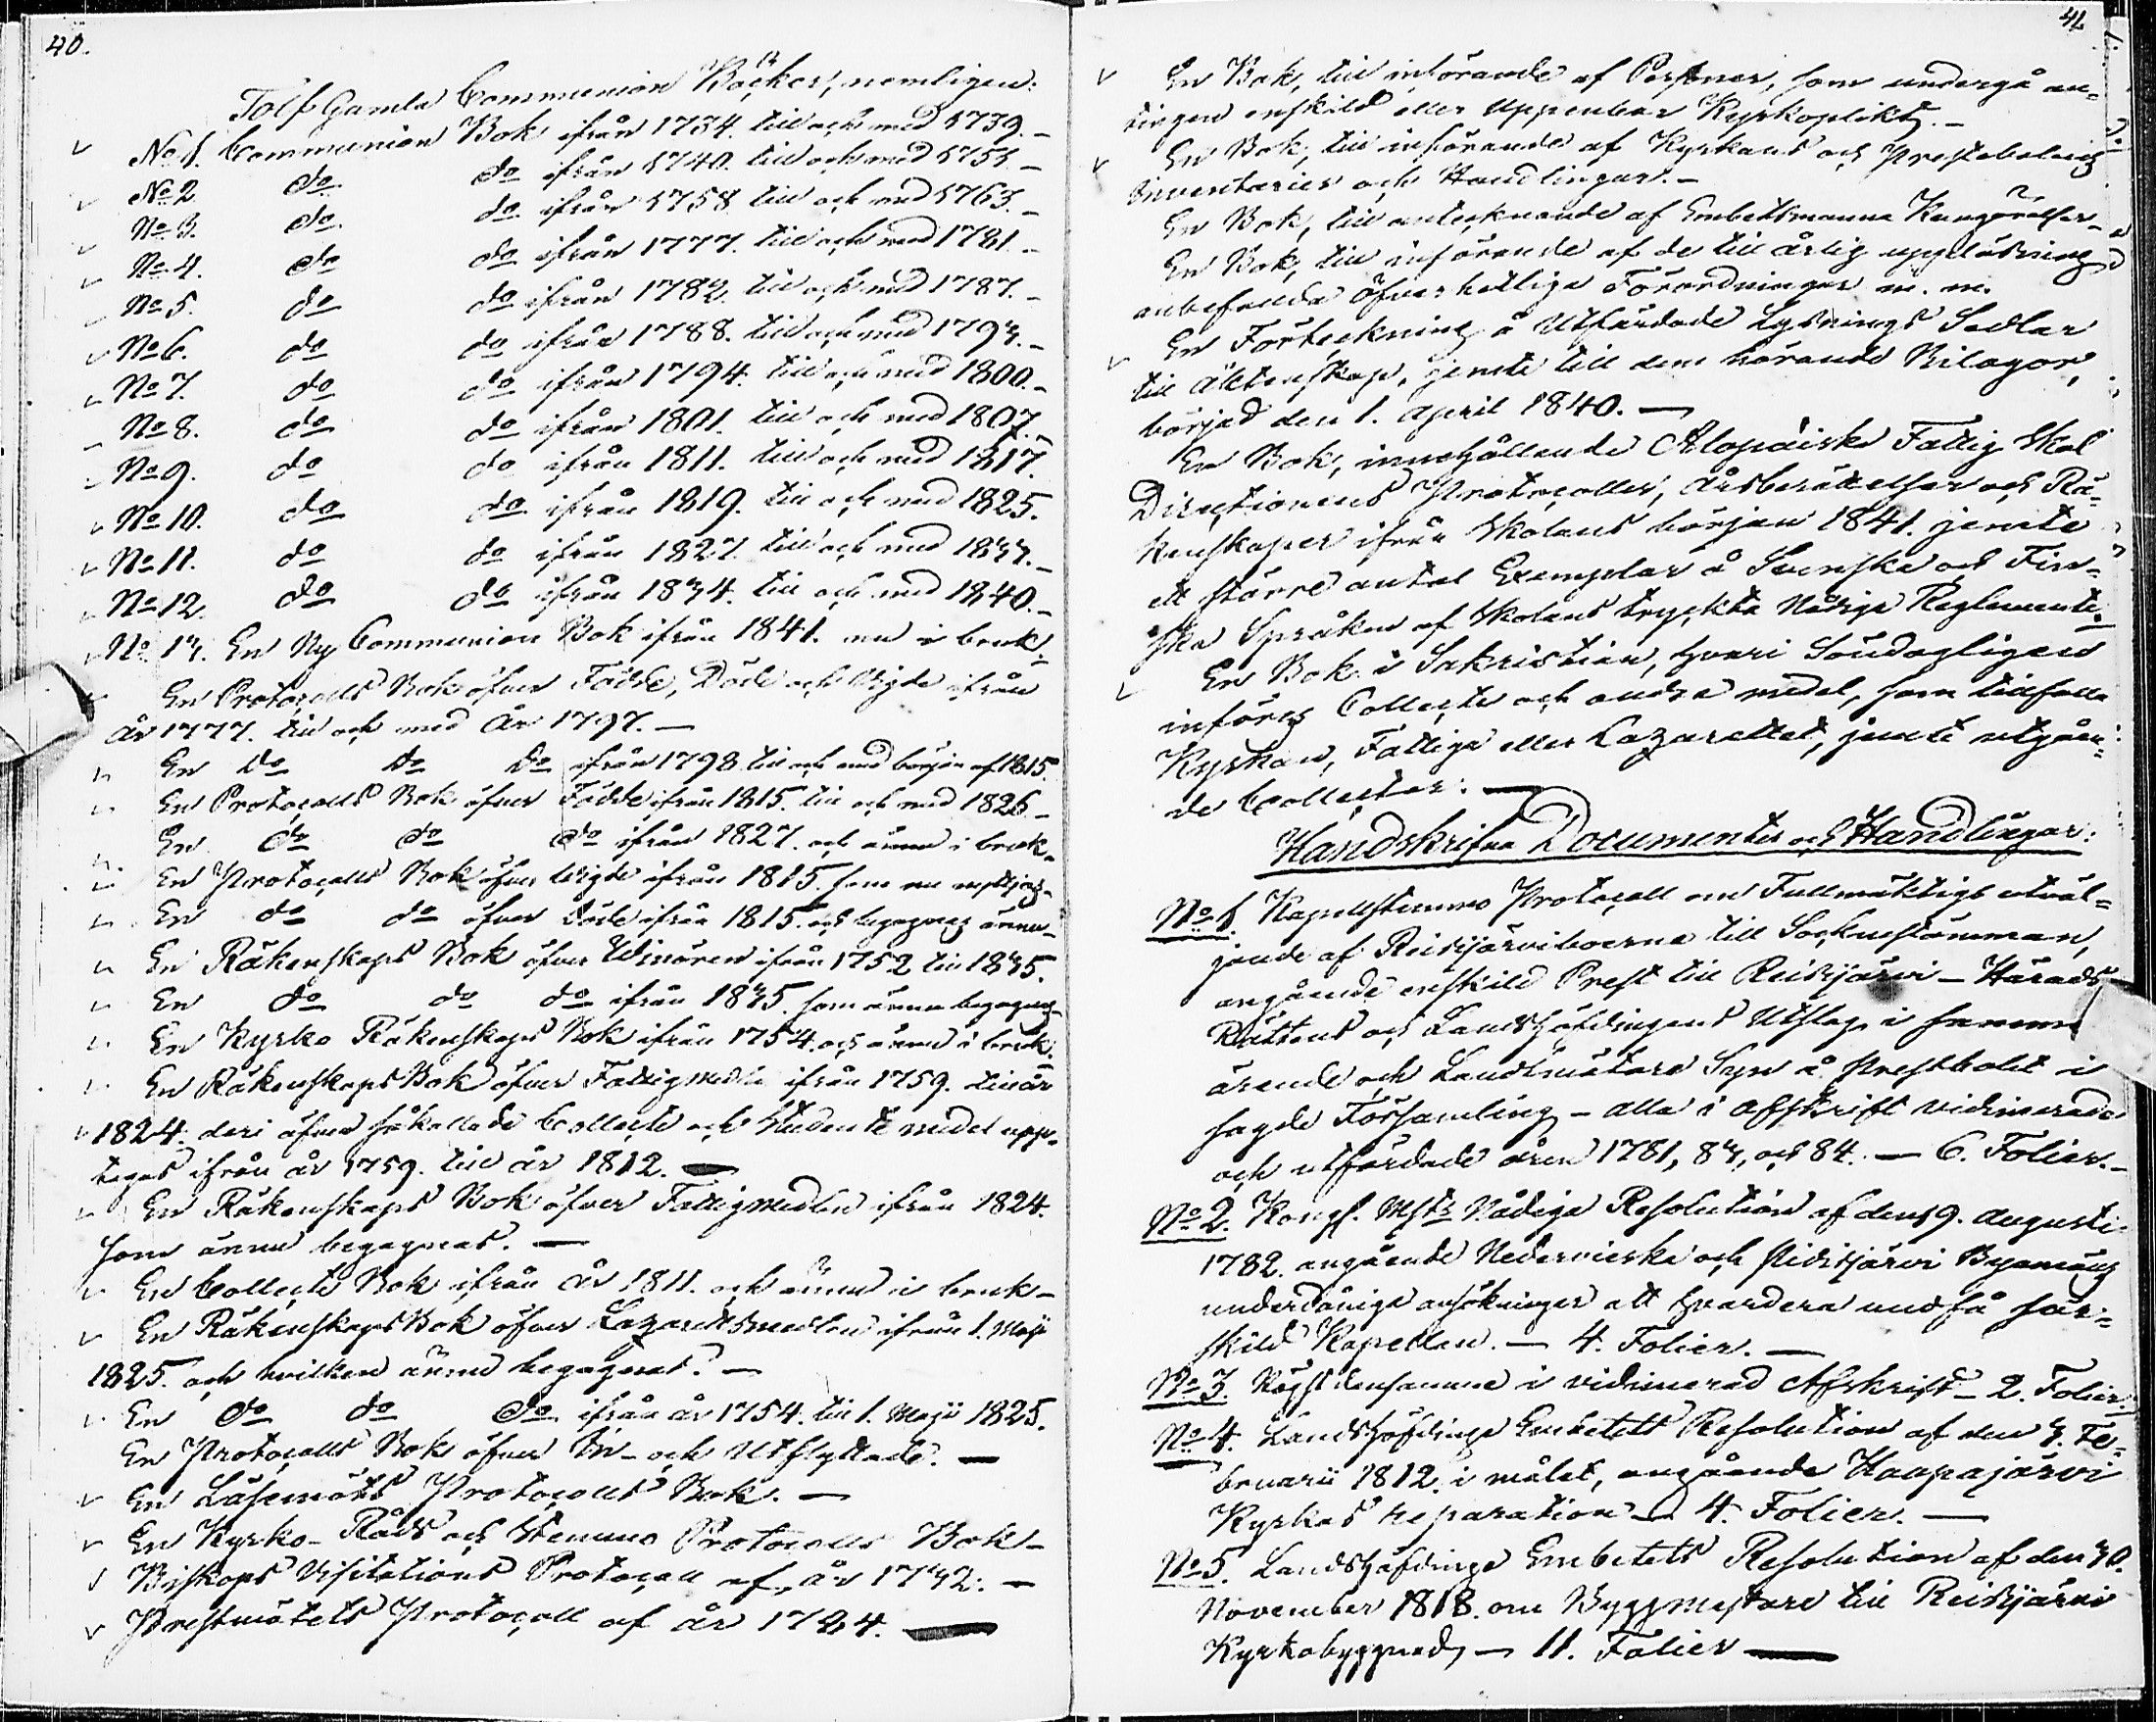 40.
Tolf Gamla Communion Böcker, nemligen:
No 1. Communion Bok ifrån 1734. till och med 1739.–
No 2. do do ifrån 1740. till och med 1751.–
No 3. do do ifrån 1758 till och med 1763.–
No 4. do do ifrån 1777. till och med 1781.–
No 5. do do ifrån 1782. till och med 1787.–
No 6. do do ifrån 1788. till och med 1793.–
No 7. do do ifrån 1794. till och med 1800.–
No 8. do do ifrån 1801. till och med 1807.
No 9. do do ifrån 1811. till och med 1817.
No 10. do do ifrån 1819. till och med 1825.
No 11. do do ifrån 1827. till och med 1833.–
No 12. do do ifrån 1834. till och med 1840.–
No 13. En Ny Communion Bok ifrån 1841. nu i bruk.
En Protocolls Bok öfver Födde, Döde och Vigde ifrån
År 1777. till och med År 1797.–
En Do Do Do ifrån 1798 till och med början af 1815.
En Protocolls Bok öfver Födde ifrån 1815. till och med 1826–
En do do do ifrån 1827. och ännu i bruk.
En Protocolls Bok öfver Vigde ifrån 1815. som nu nyttjas.
En do do öfver Döde ifrån 1815. och begagnas ännu–
En Räkenskaps Bok öfver Vinåren ifrån 1752 till 1835.
En do do do ifrån 1835. som ännu begagnas
En Kyrko Räkenskaps Bok ifrån 1754. och ännu i bruk.
En Räkenskaps Bok öfver Fattigmedlen ifrån 1759. till år
1824. deri äfven såkallade Collecte och Studente medel upp-
tages ifrån år 1759. till år 1812.–
En Räkenskaps Bok öfver Fattigmedlen ifrån 1824.
som ännu begagnas.–
En Collecte Bok ifrån år 1811. och ännu i bruk–
En Räkenskaps Bok öfver Lazaretsmedlen ifrån 1. Maji
1825. och hvilken ännu begagnas.–
En do do do ifrån år 1754. till 1. Maji 1825.
En Protocolls Bok öfver In- och Utflyttade.–
En Läsemöts Protocolls Bok.–
En Kyrko-Råds och Stemmo Protocolls Bok–
Biskops Visitations Protocoll af år 1732.–
Prestmötets Protocoll af år 1724.–
41
En Bok, till införande af Personer, som undergå an-
tingen enskild eller uppenbar Kyrkoplikt.–
En Bok, till införande af Kyrkans och Prestebolens
inventarier och Handlingar.–
En Bok, till antecknande af Embetsmanna Kungörelser–
En Bok, till införande af de till årlig uppläsning
anbefallda öfverhetliga Förordningar m. m.
En Förteckning å Utfärdade Lysnings Sedlar
till Äktenskap, jemte till dem hörande Bilagor,
börjad den 1. April 1840.–
En Bok, innehållande Alopaiska Fattig Skol
Directionens Protocoller, Årsberättelser och Rä-
kenskaper ifrån Skolans början 1841. jemte
ett större antal Exemplar å Svenska och Fin-
ska Språken af Skolans tryckta Nådiga Reglemente.
En Bok i Sakristian, hvari Söndagligen
införes Collecte och andra medel, som tillfalla
Kyrkan, Fattiga eller Lazarettet, jemte utgåen-
de Collecter.–
Handskrifna Documenter och Handlingar:
No 1. Kapellstemmo Protocoll om Fullmäktigs utväl-
jande af Reisijärviboerna till Socknestämman,
angående enskild Prest till Reisijärvi – Härads
Rättens och Landshöfdingens Utslag i samma
ärende och Landtmätare Syn å Prestbolet i
sagde Församling – alla i afskrift vidimerade
och utfärdade åren 1781, 83, och 84.– 6. Folier.–
No 2. Kongl. Mjts Nådiga Resolution af den 19. Augusti
1782. angående Nedervieska och Pidisjärvi Byamäns
underdåniga ansökningar att hvardera undfå sär-
skild Kapellan.– 4. Folier.–
No 3. Högst densamme i vidimerad Afskrift– 2. Folier.
No 4. Landshöfdinge Embetets Resolution af den 3. Fe-
bruarii 1812. i målet, angående Haapajärvi
Kyrkas reparation – 4. Folier.–
No 5. Landshöfdinge Embetets Resolution af den 30.
November 1818. om Byggmästare till Reisijärvi
Kyrkobyggnad,– 11. Folier–